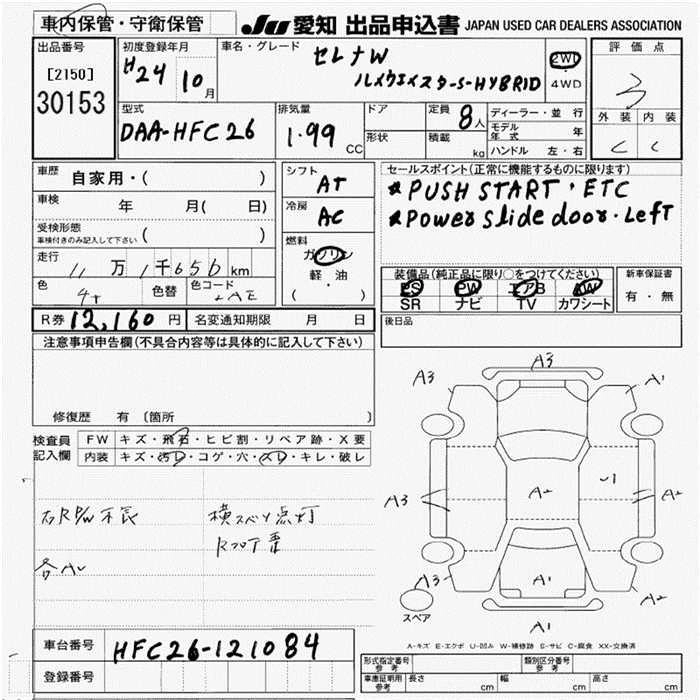 車内保管・守衛保管 JU 愛知 出品申込書 JAPAN USED CAR DEALERS ASSOCIATION
出品番号 初度登録年月 車名・グレード 評価点
[2150] H24 10月 セレナW 2WD 3
30153 ハイウェイスターS-HYBRID 4WD
型式 排気量 ドア 定員 8人 ディーラー・並行 外装 内装
DAA-HFC26 1.99 CC 形状 積載 kg モデル年式 年 C C
ハンドル 左・右
車歴 自家用・( ) シフト AT セールスポイント(正常に機能するものに限ります)
車検 年 月( 日) 冷房 AC *PUSH START・ETC
受検形態 ( ) *Power slide door・Left
車検付きのみ記入して下さい
燃料 ガソリン
走行 11万1千656km 軽・油 装備品(純正品に限り○をつけてください) 新車保証書
色 色替 色コード ( ) PS PW エアB AW 有・無
SR ナビ TV カワシート
R券 12,160円 名変通知期限 月 日 後日品
注意事項申告欄(不具合内容等は具体的に記入して下さい)
修復歴 有 〔箇所 〕
検査員記入欄 FW キズ・飛石・ヒビ割・リペア跡・X要
内装 キズ・汚レ・コゲ・穴・スレ・キレ・破レ
右RP/W不良 横スベリ点灯
A3 A3 A1
A3 A2 A2
A3 A1 A2
A1
スペア
A-キズ E-エクボ U-凹み W-補修跡 S-サビ C-腐食 XX-交換済
車台番号 HFC26-121084
登録番号
形式指定番号 参考 類別区分番号 参考
車庫証明用 参考 長さ cm 幅 cm 高さ cm